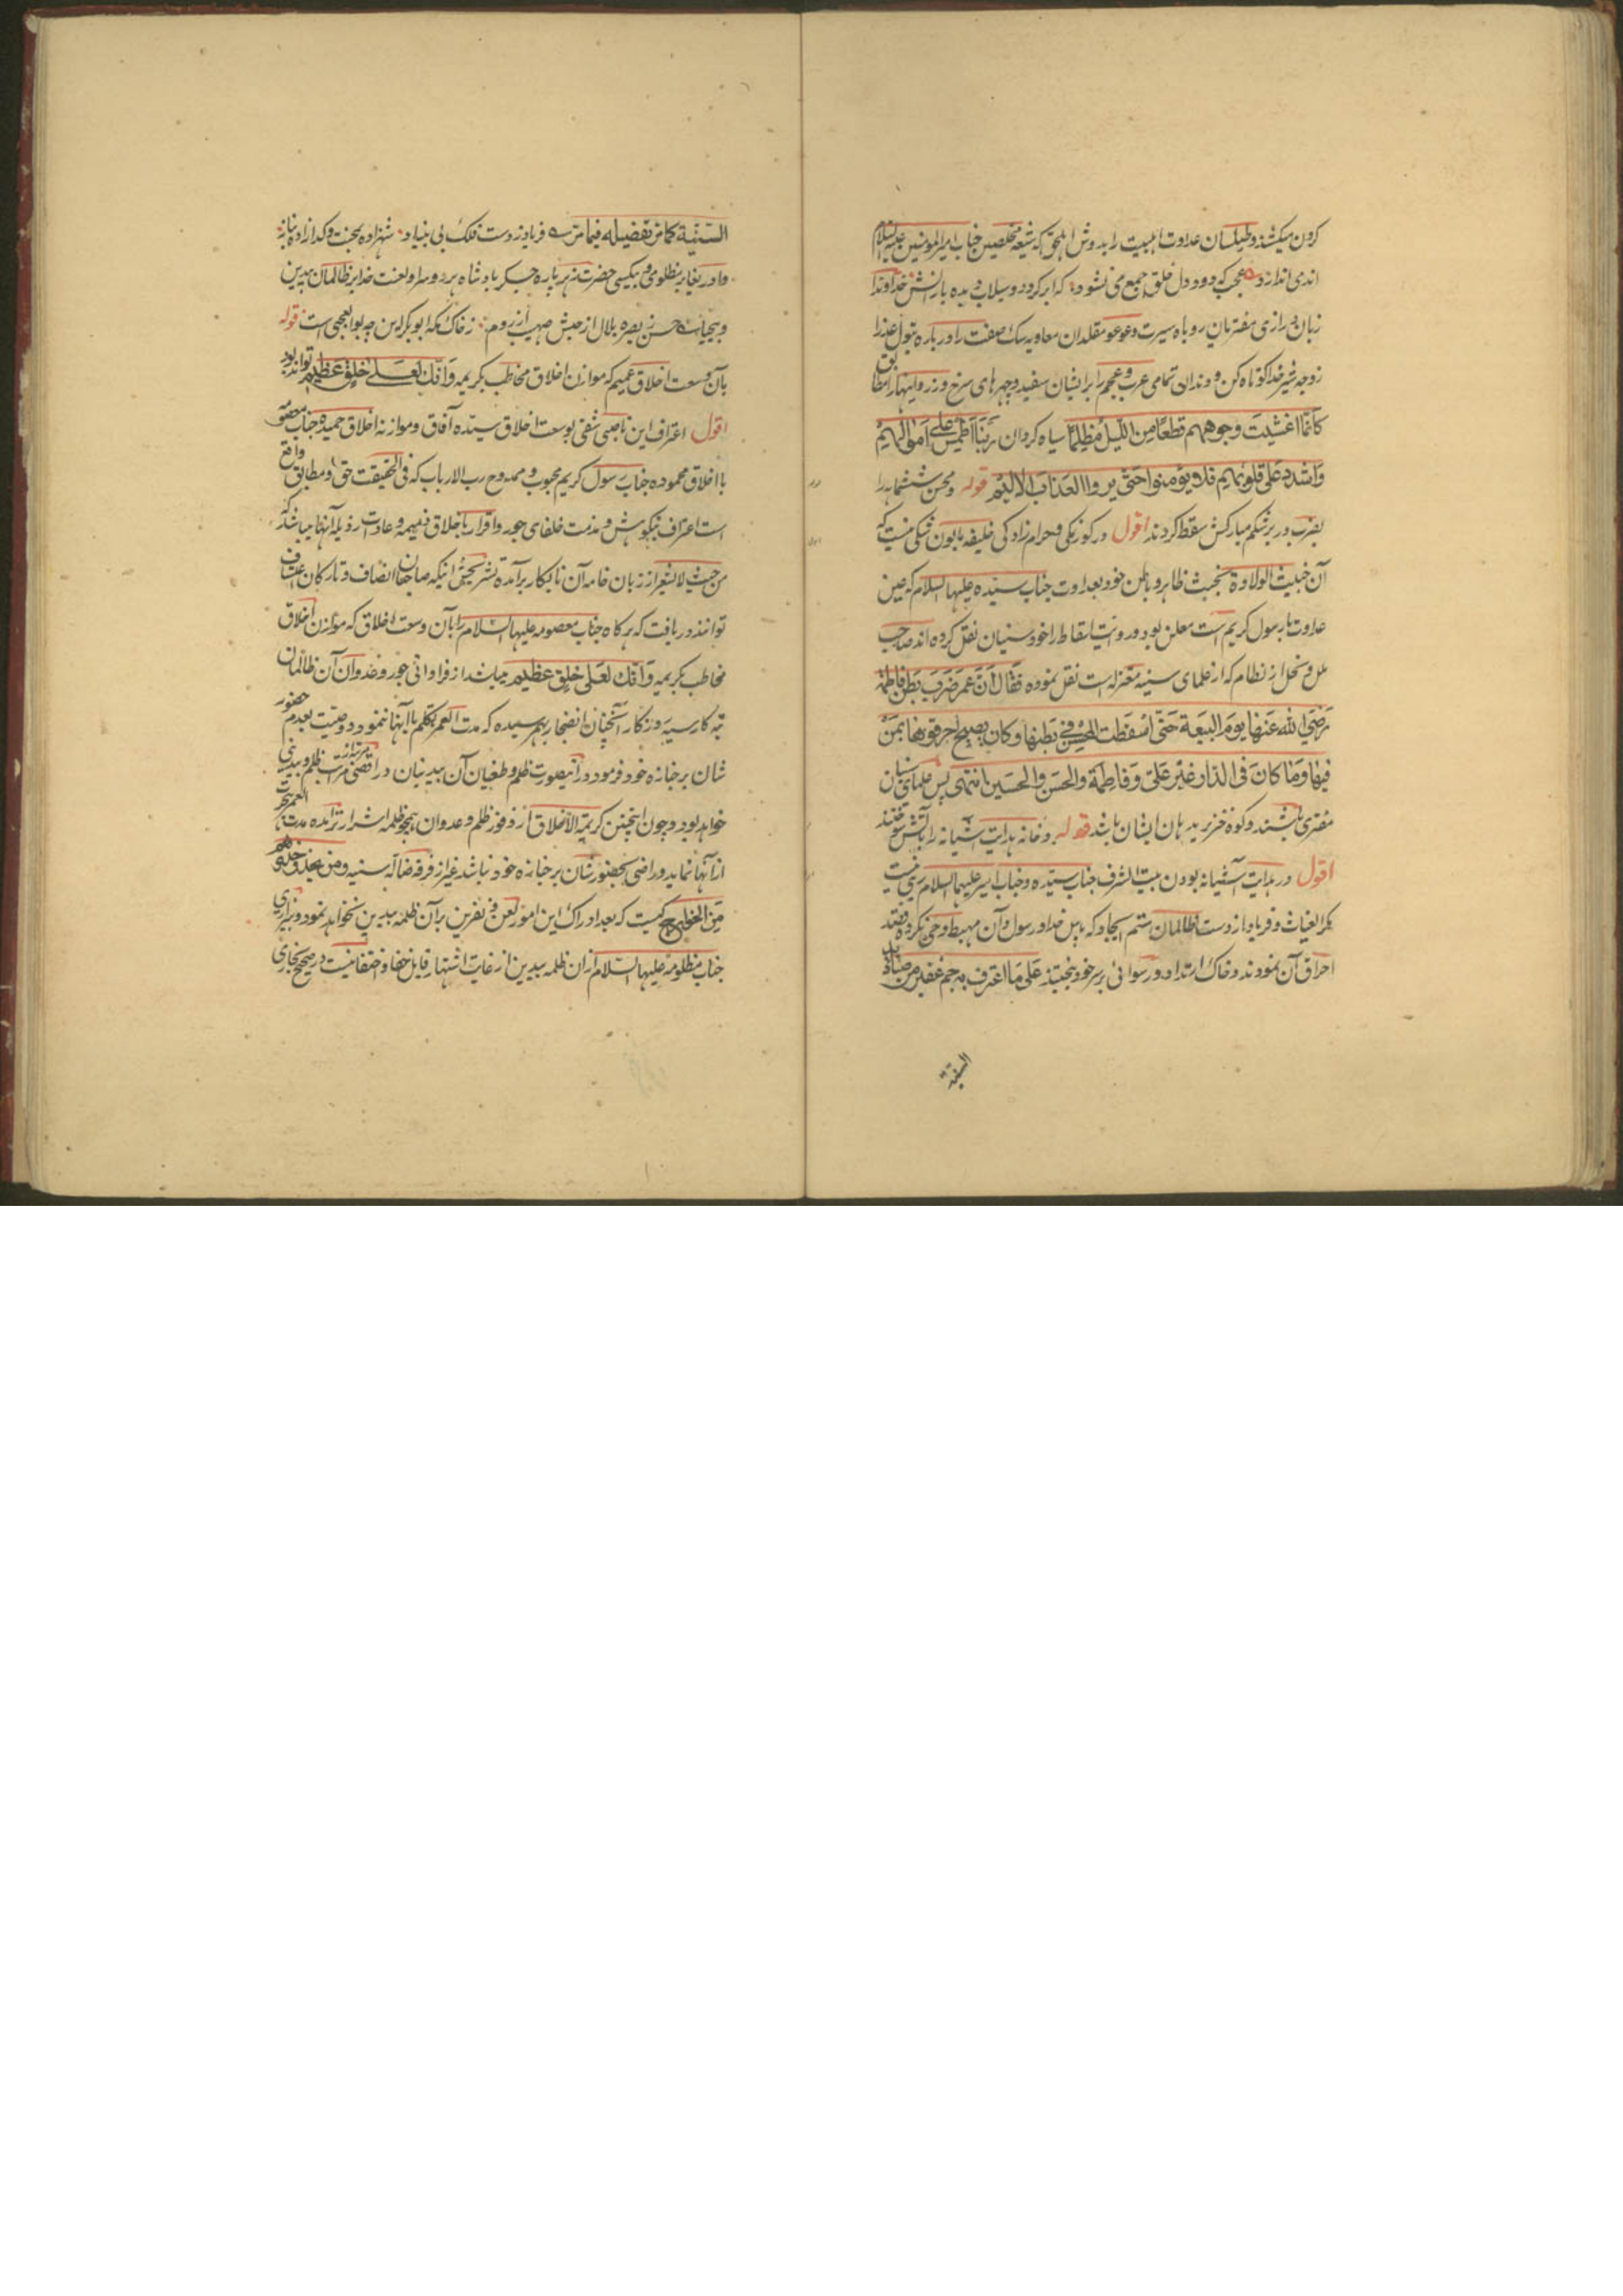 کردن میکشند و طیلسان عداوت اهلبیت را بدوش المحق که شیعه مخلصین جناب امیرالمؤمنین علیه السلام
اندی اندازد عجب که دود دل خلق جمع می نشود که ابر کردد و سیلاب دیده بارانش خداوندا
زبان درازی مفتریان روباه سیرت و عوعو مقلدان معاویه سک صفت را درباره بتول عذرا
زوجه شیر خدا کوتاه کن و دندان تمامی عرب و عجم را بر ایشان سفید و چهرهای سرخ و زرد اینها را مطابق
كانما اغشيت وجوههم قطعا من الليل مظلما سیاه کردان ربنا اطمس على اموالهم
واشدد على قلوبهم فلا يؤمنوا حتى يروا العذاب الاليم قوله و محسن ششماهه را
بضرب در بر شکم مبارکش سقط کردند اقول در کوزنکی و حرام زادکی خلیفه مابون شکی نیست که
آن خبیث الولادة بخبث ظاهر و باطن خود بعداوت جناب سیده علیها السلام که عین
عداوت با رسول کریم است معلن بود و روایت اسقاط را خود سنیان نقل کرده اند صاحب
ملل و نحل از نظام که از علمای سنیه معتزله است نقل نموده فقال ان عمر ضرب بطن فاطمة
رضي الله عنها يوم البيعة حتى اسقطت المحسن في بطنها وكان يصيح احرقوها بمن
فيها وما كان في الدار غير علي وفاطمة والحسن والحسين انتهى پس علمای سنیان
مفتری باشند و کوه خنزیر بدهان ایشان باشد قوله و خانه هدایت آشیانه را بآتش سوختند
اقول در هدایت آشیانه بودن بیت الشرف جناب سیده و جناب امیر علیهما السلام ریبی نیست
مکر الغیاث و فریاد از دست ظالمان ستم ایجاد که پاس خدا و رسول و آن مهبط وحی نکرده قصد
احراق آن نمودند و خاک ارتداد و رسوائی بر سر خود بیختند على ما اعترف به جم غفير من صناديد
السنية
السنية كما مر تفصيله فيما مر فریاد ز دست فلک بی بنیاد شهزاده بحنت و کدازاده بناز
وا دریغا بر مظلومی و بیکسی حضرت زهر پاره جکر بادشاه هر دو سرا و لعنت خدا بر ظالمان بیدین
و بیحیا حسن ز بصره بلال از حبش صهیب از روم ز خاک مکه ابوبکر این چه بوالعجبی است قوله
بآن وسعت اخلاق عمیم که موازن اخلاق مخاطب بکریمه وانك لعلى خلق عظيم تواند بود
اقول اعتراف این ناصبی شقی بوسعت اخلاق سیده آفاق و موازنه اخلاق حمیده جناب معصومه
با اخلاق محموده جناب رسول کریم محبوب و ممدوح رب الارباب که فی الحقیقت حق و مطابق واقع
است اعتراف بنکوهش و مذمت خلفای جور و اقرار باخلاق ذمیمه و عادات رذیله آنها میباشد که
من حیث لا یشعر از زبان خامه آن نابکار برآمده تشریحش اینکه صاحبان انصاف و تارکان اعتساف
توانند دریافت که هرکاه جناب معصومه علیها السلام را بآن وسعت اخلاق که موازن اخلاق
مخاطب بکریمه وانك لعلى خلق عظيم میباشد از فراوانی جور و عدوان آن ظالمان
تبه کار سیه روزکار آنچنان انضجار بهم رسیده که مدت العمر تکلم با آنها ننمود و وصیت بعدم حضور
شان بر جنازه خود فرمود در اینصورت ظلم و طغیان آن بیدینان در اقصی مرتبه از مراتب ظلم و بیدینی
خواهد بود و چون اینچنین کریمة الاخلاق از وفور ظلم و عدوان همچو ظلمه اشرار ترآمده مدت العمر هجرت
از آنها نماید و راضی بحضور شان بر جنازه خود نباشد غیر از فرقه ضاله سنیه ومن يحذو حذوهم
من الخوارج کیست که بعد ادراک این امور لعن و نفرین بر آن ظلمه بیدین نخواهد نمود و بیزاری
جناب مظلومه علیها السلام از ان ظلمه بیدین از غایت اشتهار قابل خفا و اختفا نیست در صحیح بخاری